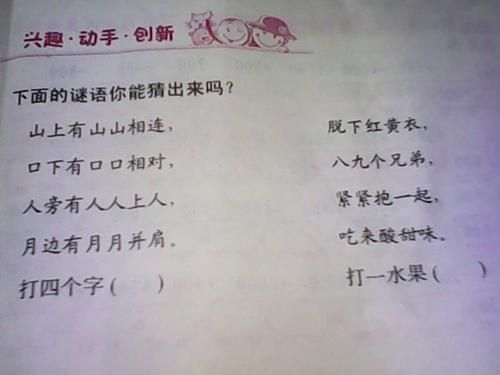 兴趣·动手·创新
下面的谜语你能猜出来吗？
山上有山山相连，
口下有口口相对，
人旁有人人上人，
月边有月月并肩。
打四个字（ ）
脱下红黄衣，
八九个兄弟，
紧紧抱一起，
吃来酸甜味。
打一水果（ ）